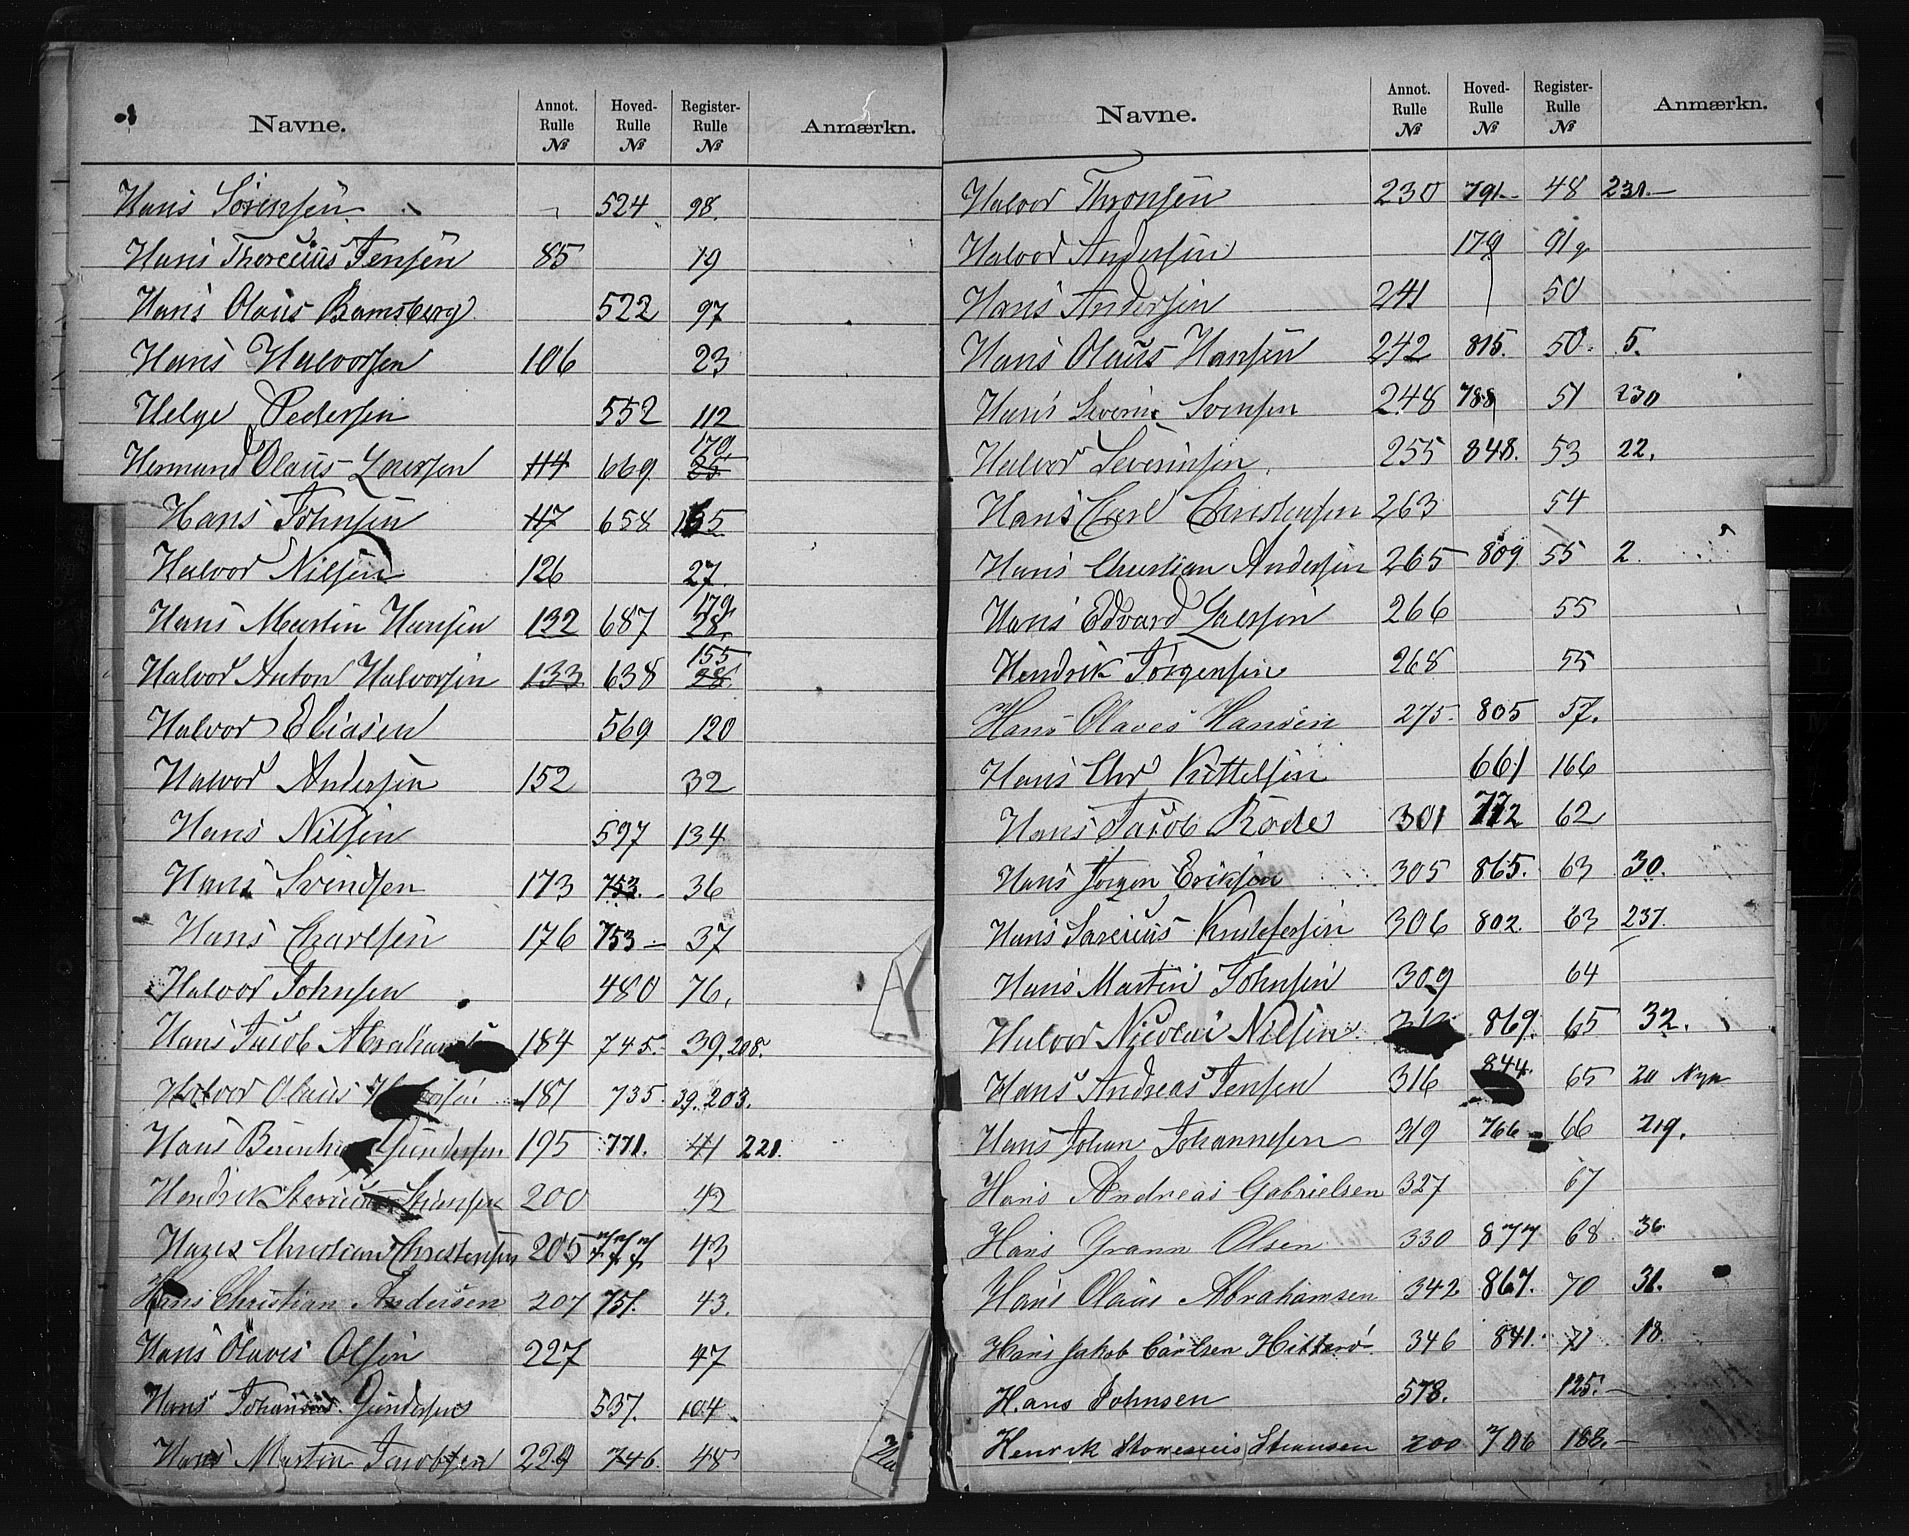 Navne. Annot. Rulle № Hoved-Rulle № Register-Rulle № Anmærkn.
Hans Sörensen 524 98.
Hans Thorenius Jensen 85 19
Hans Olaus Ramsberg 522 97
Hans Halvorsen 106 23
Helge Pedersen 552 112
Hermand Olaus Larsen 114 669 179 25
Hans Johnsen 117 658 165
Halvor Nilsen 126 27
Hans Martin Hansen 132 687 179 28
Halvor Anton Halvorsen 133 638 155 28
Halvor Eliasen 569 120
Halvor Andersen 152 32
Hans Nilsen 597 134
Hans Svendsen 173 753. 36
Hans Charlsen 176 753 – 37
Halvor Johnsen 480 76.
Hans Jacob Abraham 184 745. 39. 208.
Halvor Olaus 181 735. 39. 203.
Hans Gundersen 195 771. 41 221.
Hendrik 200 42
Christian Christensen 205 777 43
Hans Christian Andersen 207 751. 43.
Hans Olaves Olsen 227 47
Hans Gundersen 537. 104
Hans Martin Jacobsen 229 746. 48
Navne. Annot. Rulle № Hoved-Rulle № Register-Rulle № Anmærkn.
Halvor Thronsen 230 791 – 48 231. –
Halvor Andersen 179 91
Hans Andersen 241 50
Hans Olaus Hansen 242 815. 50. 5.
Hans Severin Svensen 248 788 51 230
Halvor Severinsen 255 848. 53 22.
Hans Carl Christensen 263 54
Hans Christian Andersen 265 809 55 2
Hans Edvard Larsen 266 55
Hendrik Jörgensen 268 55
Hans Olaves Hansen 275. 805 57.
Hans Chr Kittelsen 661 166
Hans Jacob Rode 301 772 62
Hans Jörgen Eriksen 305 865. 63 30.
Hans Kristofersen 306 802. 63 237.
Hans Martin Johnsen 309 64
Halvor Nicolai Nilsen. 869. 65 32.
Hans Andreas Jensen 316 844. 65 20
Hans Johan Johannesen 319 766 66 219.
Hans Andreas Gabrielsen 327 67
Hans Grann Olsen 330 877 68 36
Hans Olaus Abrahamsen 342 867. 70 31.
Hans Jakob Carlsen Hitterö. 346 841. 71 18.
Hans Johnsen 578. 125. –
Henrik 200 706 188. –